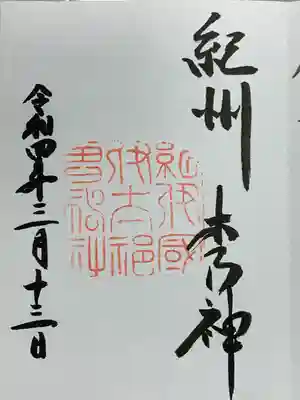 紀州 木乃神
紀伊國
伊太祁
曽神社
令和四年三月十三日